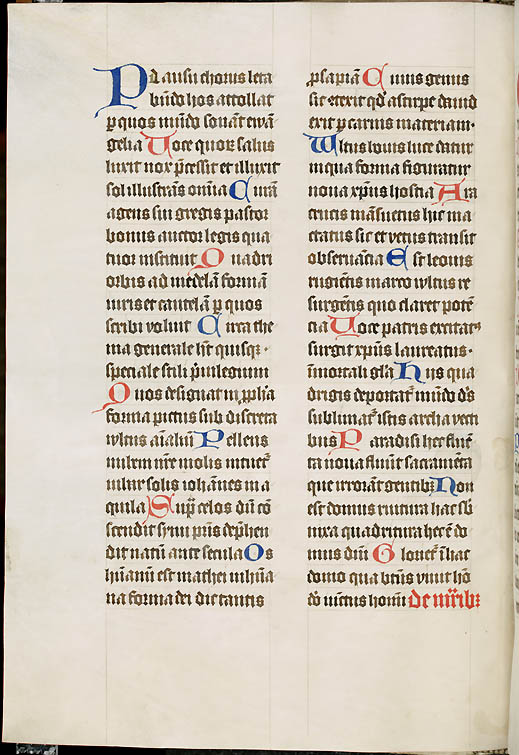 Plausu chorus leta
būdo hos attollat
p quos mūdo sonāt ewā
gelia Uoce quoꝝ salus
luxit nox pcessit et illuxit
sol illustrās omīa Curā
agens sui gregis pastor
bonus auctor legis qua
tuor instituit Quadri
orbis ad medelā formam
iuris et cautelā p quos
scribi voluit Circa the
ma generale hīt quisqꝫ
speciale stili priuilegium
Quos designat in pphīa
forma pictus sub discreta
vultus aīaliū Pellens
nubem nre molis intuet
ubar solis iohānes in a
quila Sup celos dū cō
scendit syni pris dephen
dit natū ante secula Os
hūanū est mathei in hūa
na forma dei dictantis
psapiā Cuius genus
sic exerit qd a stirpe dauid
exit p carnis materiam
Ultus bouis luce datur
in qua forma figuratur
noua xpus hostia Ara
crucis māsuetus hic ma
ctatus sic et vetus transit
obseruācia Est leonis
rugientis marco vultus re
surgētis quo claret potē
cia Uoce patris excitatꝰ
surgit xpus laureatus
īmortali glīa Hiis qua
drigis deportat mūdo ds
sublimat istis archa vecti
bus Paradisi hec fluē
ta noua fluūt sacramēta
que irrorāt gentibꝫ Non
est domus ruitura hac sub
nixa quadritura hec ē do
mus dīni Gloriet ī hac
domo qua btūs viuit hō
dō iūctus homī de mrībꝫ